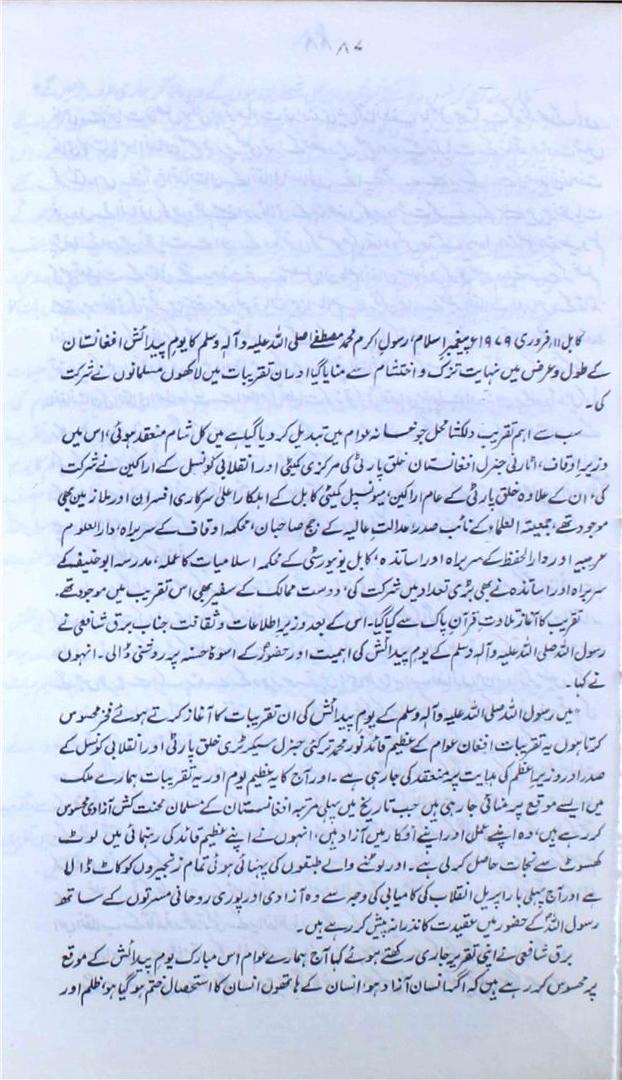 ۸۷
کابل ۱۱، فروری ۱۹۷۹ء پیغمبرِ اسلام، رسولِ اکرم محمد مصطفےٰ صلی اللہ علیہ وآلہٖ وسلم کا یومِ پیدائش افغانستان
کے طول وعرض میں نہایت تزک و احتشام سے منایا گیا اور ان تقریبات میں لاکھوں مسلمانوں نے شرکت
کی۔
سب سے اہم تقریب دلکشا محل جو خانہ عوام میں تبدیل کر دیا گیا ہے میں کل شام منعقد ہوئی، اس میں
وزیر اوقاف، اٹارنی جنرل افغانستان خلق پارٹی کی مرکزی کمیٹی اور انقلابی کونسل کے اراکین نے شرکت
کی، ان کے علاوہ خلق پارٹی کے عام اراکین، میونسپل کمیٹی کابل کے اہلکار اعلیٰ سرکاری افسران اور ملازمین بھی
موجود تھے، جمعیۃ العلماء کے نائب صدر عدالتِ عالیہ کے جج صاحبان، محکمہ اوقاف کے سربراہ، دارالعلوم
عربیہ اور دارالحفظ کے سربراہ اور اساتذہ، کابل یونیورسٹی کے محکمہ اسلامیات کا عملہ، مدرسہ ابو حنیفہ کے
سربراہ اور اساتذہ نے بھی بڑی تعداد میں شرکت کی، دوست ممالک کے سفیر بھی اس تقریب میں موجود تھے۔
تقریب کا آغاز تلاوتِ قرآنِ پاک سے کیا گیا۔ اس کے بعد وزیر اطلاعات و ثقافت جناب برق شافعی نے
رسول اللہ صلی اللہ علیہ وآلہٖ وسلم کے یومِ پیدائش کی اہمیت اور حضورؐ کے اسوۂ حسنہ پر روشنی ڈالی۔ انہوں
نے کہا۔
"میں رسول اللہ صلی اللہ علیہ وآلہ وسلم کے یومِ پیدائش کی ان تقریبات کا آغاز کرتے ہوئے فخر محسوس
کرتا ہوں یہ تقریبات افغان عوام کے عظیم قائد نور محمد ترکئی جنرل سیکرٹری خلق پارٹی اور انقلابی کونسل کے
صدر اور وزیرِ اعظم کی ہدایت پر منعقد کی جا رہی ہے۔ اور آج کا یہ عظیم یوم اور یہ تقریبات ہمارے ملک
میں ایسے موقع پر منائی جا رہی ہیں جب تاریخ میں پہلی مرتبہ افغانستان کے مسلمان محنت کش آزادی محسوس
کر رہے ہیں، وہ اپنے عمل اور اپنے افکار میں آزاد ہیں، انہوں نے اپنے عظیم قائد کی رہنمائی میں لوٹ
کھسوٹ سے نجات حاصل کر لی ہے۔ اور لوٹنے والے طبقوں کی پہنائی ہوئی تمام زنجیروں کو کاٹ ڈالا
ہے اور آج پہلی بار اپریل انقلاب کی کامیابی کی وجہ سے وہ آزادی اور پوری روحانی مسرتوں کے ساتھ
رسول اللہؐ کے حضور میں عقیدت کا نذرانہ پیش کر رہے ہیں۔
برق شافعی نے اپنی تقریر جاری رکھتے ہوئے کہا آج ہمارے عوام اس مبارک یومِ پیدائش کے موقع
پر محسوس کر رہے ہیں کہ اگر انسان آزاد ہو انسان کے ہاتھوں انسان کا استحصال ختم ہو گیا ہو، ظلم اور